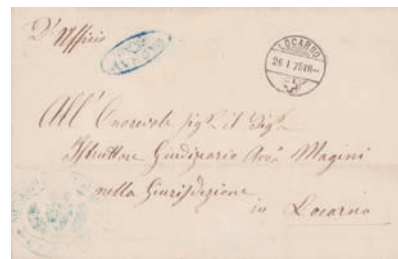 D'Ufficio
LOCARNO
26 I 75 VIII-
All' Onorevole sigr. il Sigr.
Istruttore Giudiziario Avvo. Magini
nella Giurisdizione
in Locarno